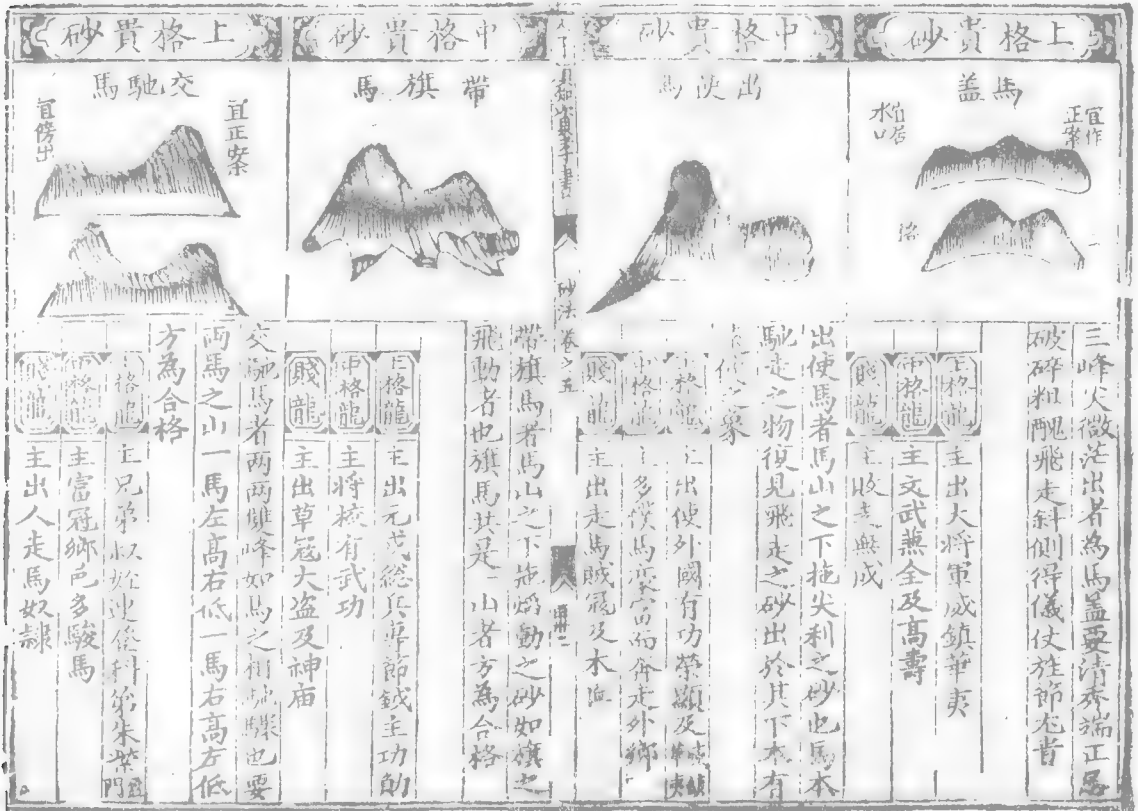 上格貴砂
馬盖
宜作
正案
宜居
水口
三峰火微茫出者為馬盖要清秀端正忌
破碎粗醜飛走斜側得儀仗旌節尤貴
上格龍
主出大將軍威鎮華夷
中格龍
主文武兼全及高壽
賤龍
主敗走無成
中格貴砂
出使馬
出使馬者馬山之下拖尖利之砂也馬本
馳走之物復見飛走之砂出於其下本有
使之象
上格龍
主出使外國有功榮顯及
中格龍
主多僕馬
而奔走外鄉
賤龍
主出走馬賊寇及木
砂法 卷之五
中格貴砂
帶旗馬
帶旗馬者馬山之下拖熖動之砂如旗之
飛動者也旗馬共是一山者方為合格
上格龍
主出元戎總兵專節鉞主功勛
中格龍
主將校有武功
賤龍
主出草寇大盗及神庙
上格貴砂
交馳馬
宜正案
宜傍出
交馳馬者两两雙峰如馬之相馳驟也要
両馬之山一馬左高右低一馬右高左低
方為合格
上格龍
主兄弟叔姪連係科第朱紫
門
中格龍
主富冠鄉邑多駿馬
賤龍
主出人走馬奴隸